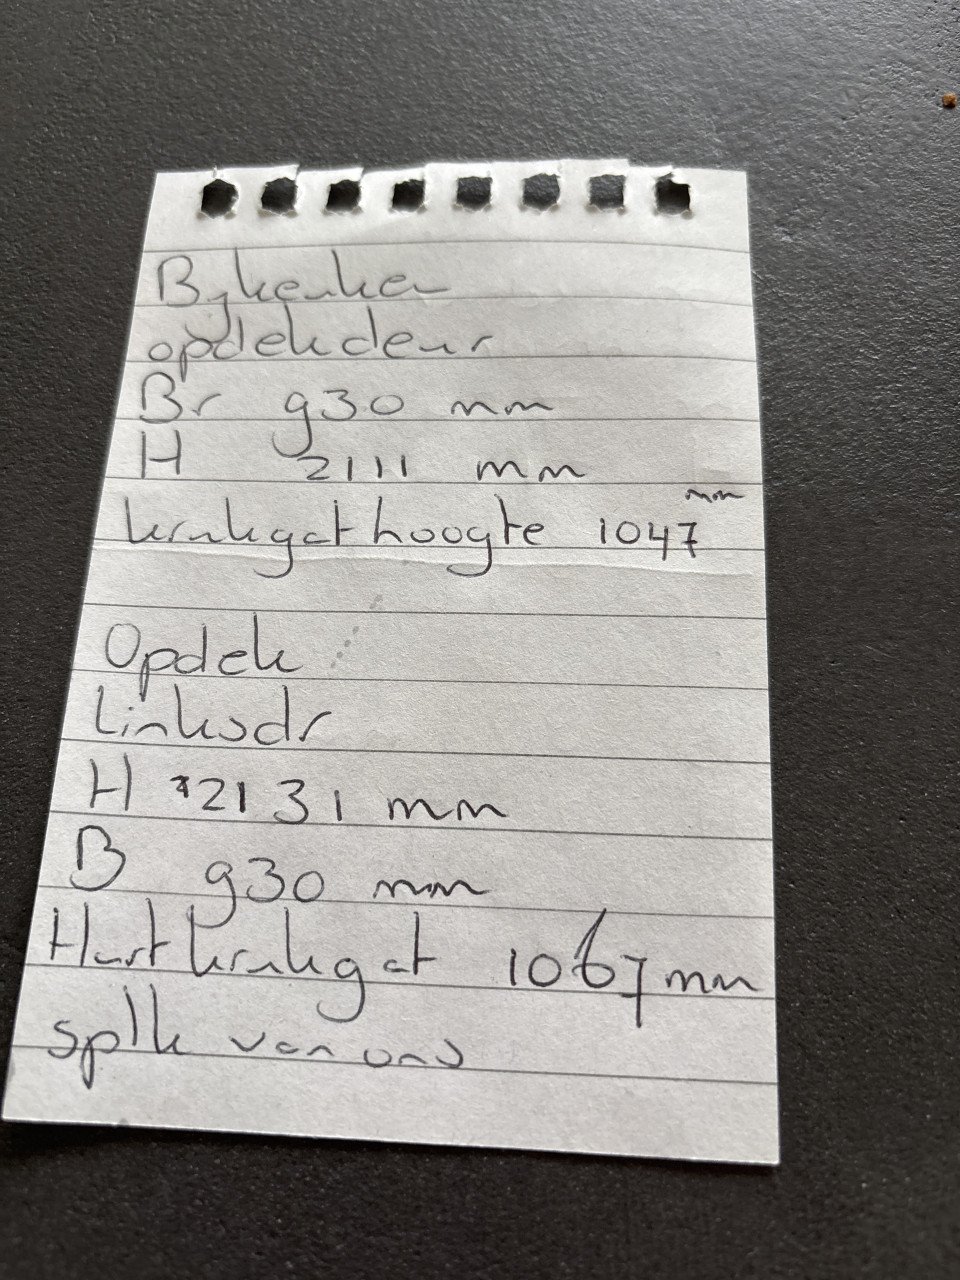 Bykeuken
opdekdeur
Br 930 mm
H 2111 mm
krukgathoogte 1047 mm
Opdek
Linksdr
H 2131 mm
B 930 mm
Hart krukgat 1067 mm
van ons